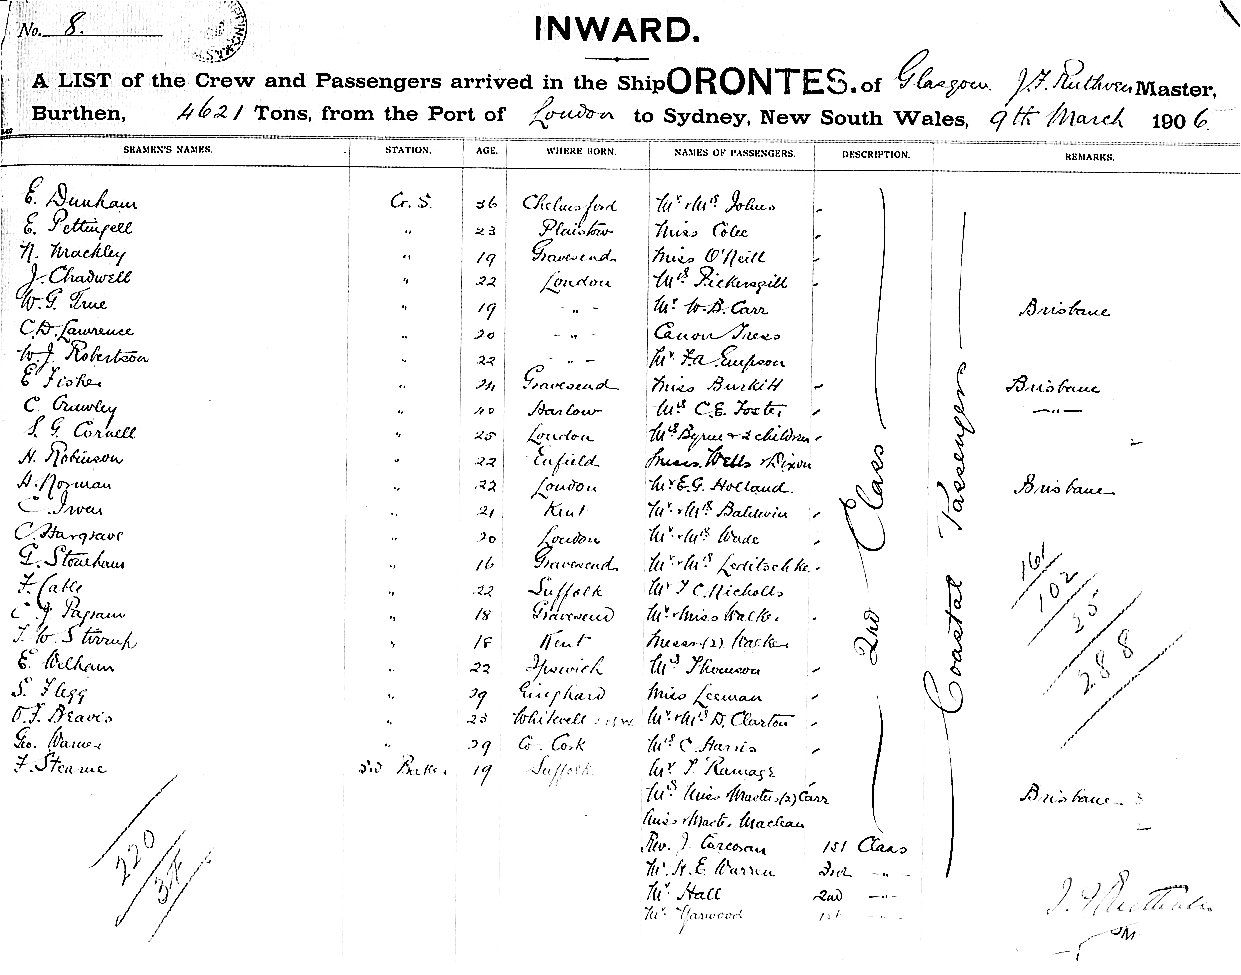 No. 8.
INWARD.
A LIST of the Crew and Passengers arrived in the Ship ORONTES. of Glasgow J.F. Ruthven Master,
Burthen, 4621 Tons, from the Port of London to Sydney, New South Wales, 9th March 1906
SEAMEN'S NAMES. STATION. AGE. WHERE BORN. NAMES OF PASSENGERS. DESCRIPTION. REMARKS.
E. Dunham Cr. S. 36 Chelmsford Mr & Mrs Johns
E. Pettingell " 23 Plaistow Miss Colee
N. Mackley " 19 Gravesend Miss O'Neill
J. Chadwell " 22 London Mrs Pickersgill
W.G. True " 19 - " - Mr W.B. Carr Brisbane
C.D. Lawrence " 20 - " - Canon Tress
W.J. Robertson " 22 - " - Mr F.A. Empson
E Fisher " 24 Gravesend Miss Burkitt Brisbane
C. Crawley " 40 Harlow Mrs C.E. Foster - " -
S. G. Cornell " 25 London Mrs Byrne & 2 children
H. Robinson " 22 Enfield Misses Wells & Dixon
A. Norman " 22 London Mr E.G. Holland. Brisbane
C. Iven " 21 Kent Mr & Mrs Baldwin
C. Hargrave " 20 London Mr & Mrs Wade
G. Stoneham " 16 Gravesend Mr & Mrs Leditschke
F. Cable " 22 Suffolk Mr T C Nicholls
C. J. Pagram " 18 Gravesend Mr & Miss Walker
T. W. Stirrup " 18 Kent Messrs (2) Walker
E. Welham " 22 Ipswich Mrs Thomson
S. Flegg " 29 Miss Leeman
O.F. Beavis " 23 Whitwell Mr & Mrs D. Clarton
Geo. Warner " 29 Co. Cork Mrs C. Harris
F. Stearne 3rd 19 Suffolk Mr T. Ramage
Mrs Miss Masters (2) Carr Brisbane
Miss Mast. Maclean
Rev. J. Corcoran 1st Class
Mr. H. E. Warren 3rd - " -
Mr Hall 2nd - " -
Mr Garwood 1st - " -
2nd Class
Coastal Passengers
161
102
25
288
220
38
J. F. Ruthven